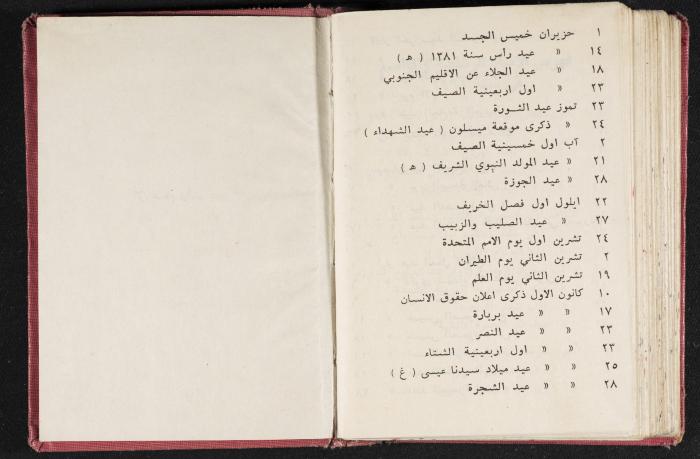 ١ حزيران خميس الجسد
١٤ » عيد رأس سنة ١٣٨١ ( ه )
١٨ » عيد الجلاء عن الاقليم الجنوبي
٢٣ » اول اربعينية الصيف
٢٣ تموز عيد الثورة
٢٤ » ذكرى موقعة ميسلون ( عيد الشهداء )
٢ آب اول خمسينية الصيف
٢١ » عيد المولد النبوي الشريف ( ه )
٢٨ » عيد الجوزة
٢٢ ايلول اول فصل الخريف
٢٧ » عيد الصليب والزبيب
٢٤ تشرين اول يوم الامم المتحدة
٢ تشرين الثاني يوم الطيران
١٩ تشرين الثاني يوم العلم
١٠ كانون الاول ذكرى اعلان حقوق الانسان
١٧ » » عيد بربارة
٢٣ » » عيد النصر
٢٣ » » اول اربعينية الشتاء
٢٥ » » عيد ميلاد سيدنا عيسى ( غ )
٢٨ » » عيد الشجرة